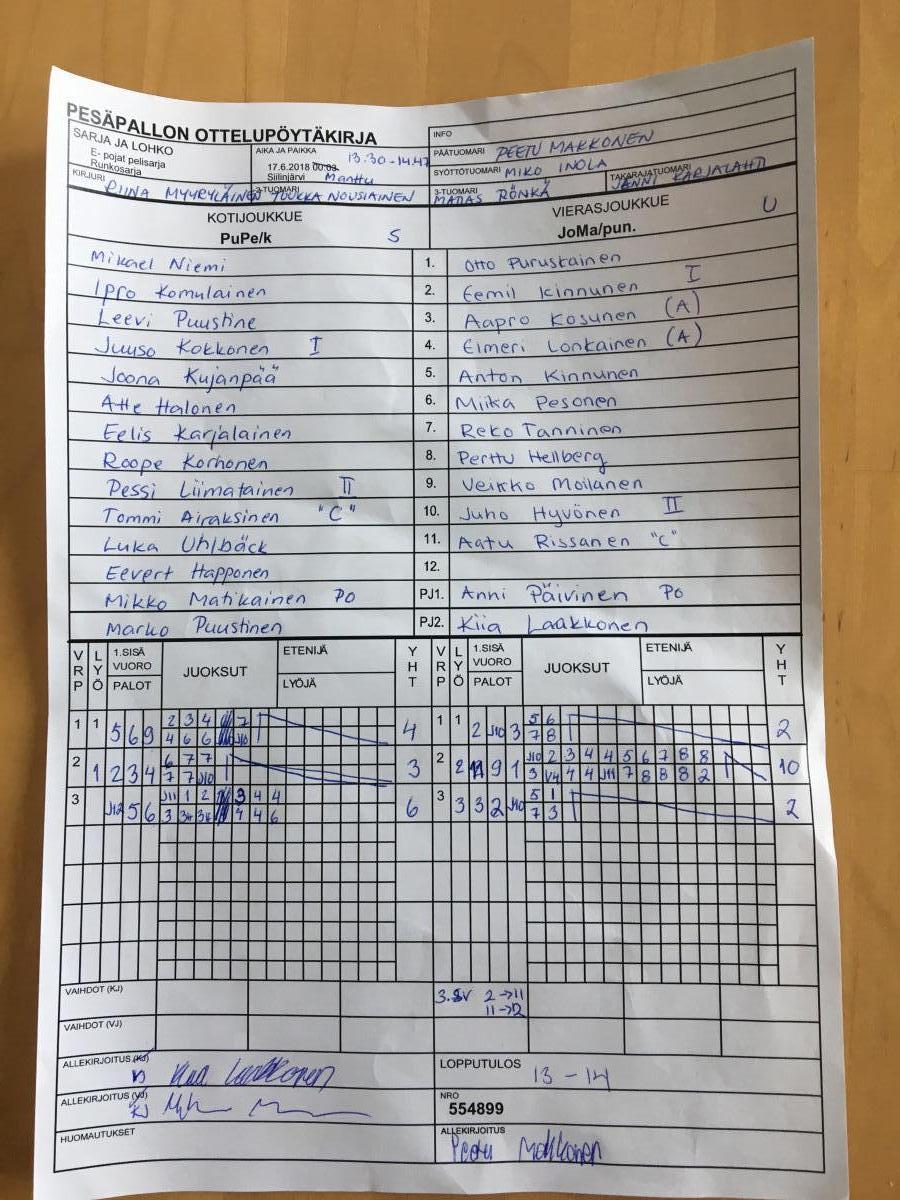 PESÄPALLON OTTELUPÖYTÄKIRJA
SARJA JA LOHKO
E- pojat pelisarja
Runkosarja
AIKA JA PAIKKA 13.30-14.47
17.6.2018 00:03
Siilinjärvi Manttu
INFO
PÄÄTUOMARI PEETU MAKKONEN
SYÖTTÖTUOMARI MIKO INOLA
TAKARAJATUOMARI JANNI KARJALAHTI
KIRJURI PIINA MYHRYLÄINEN
2-TUOMARI TUUKKA NOUSIAINEN
3-TUOMARI MATIAS RÖNKÄ
KOTIJOUKKUE
PuPe/k S
VIERASJOUKKUE
JoMa/pun. U
Mikael Niemi 1. Otto Puruskainen
Ipro Komulainen 2. Eemil Kinnunen I
Leevi Puustine 3. Aapro Kosunen (A)
Juuso Kokkonen I 4. Elmeri Lonkainen (A)
Joona Kujanpää 5. Anton Kinnunen
Atte Halonen 6. Miika Pesonen
Eelis Karjalainen 7. Reko Tanninen
Roope Korhonen 8. Perttu Hellberg
Pessi Liimatainen II 9. Veikko Moilanen
Tommi Airaksinen "C" 10. Juho Hyvönen II
Luka Uhlbäck 11. Aatu Rissanen "C"
Eevert Happonen 12.
Mikko Matikainen PO PJ1. Anni Päivinen PO
Marko Puustinen PJ2. Kiia Laakkonen
VRP LYÖ 1.SISÄ VUORO PALOT JUOKSUT ETENIJÄ LYÖJÄ YHT VRP LYÖ 1.SISÄ VUORO PALOT JUOKSUT ETENIJÄ LYÖJÄ YHT
1 1 5 6 9 2 3 4 7 4 1 1 2 J10 3 5 6 2
4 6 6 J10 7 8
2 1 2 3 4 6 7 7 3 2 2 9 1 J10 2 3 4 4 5 6 7 8 8 10
7 7 J10 3 V4 4 4 J11 7 8 8 8 2
3 J12 5 6 J11 1 2 3 4 4 6 3 3 3 2 J10 5 1 2
3 3 3 4 4 6 7 3
VAIHDOT (KJ) 3.SV 2→11
11→2
VAIHDOT (VJ)
ALLEKIRJOITUS (KJ) VJ Kiia Laakkonen
LOPPUTULOS 13-14
ALLEKIRJOITUS (VJ) KJ
NRO
554899
HUOMAUTUKSET
ALLEKIRJOITUS
Peetu Makkonen